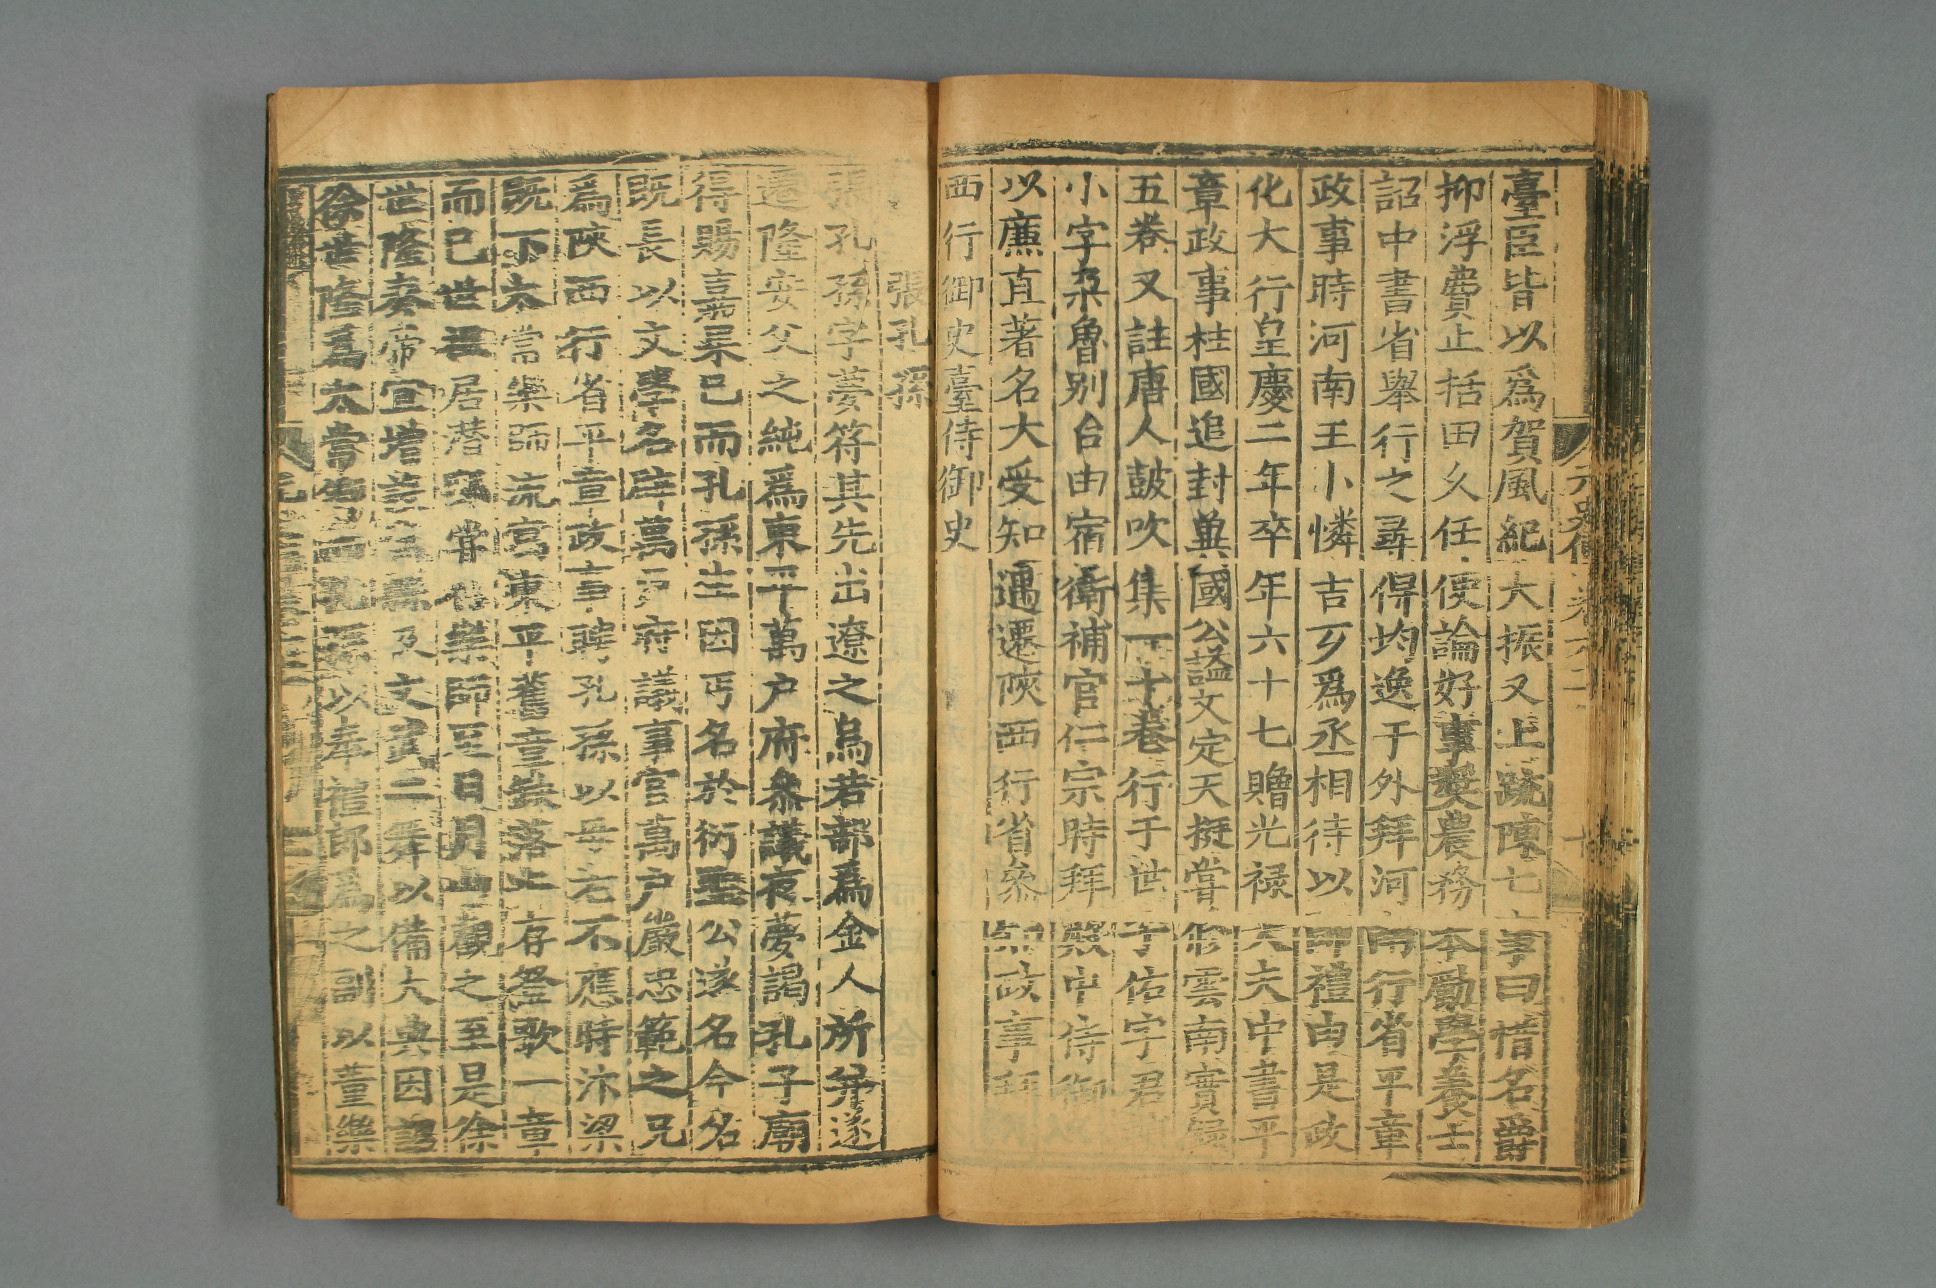 臺臣皆以爲賀風紀大振又上䟽陳七事曰惜名爵
抑浮費止括田久任使論好事奬農務本勵學養士
詔中書省舉行之尋得均逸于外拜河南行省平章
政事時河南王卜憐吉歹爲丞相待以師禮由是政
化大行皇慶二年卒年六十七贈光禄大夫中書平
章政事柱國追封冀國公謚文定天挺嘗修雲南實録
五卷又註唐人鼓吹集一十卷行于世子佑字君
小字朶魯别台由宿衛補官仁宗時拜殿中侍御
以廉直著名大受知遇遷陝西行省叅知政事拜
西行御史臺侍御史
張孔孫
張孔孫字夢符其先出遼之烏若部爲金人所并遂
遷隆安父之純爲東平萬户府叅議夜夢謁孔子廟
得賜嘉果已而孔孫生因丐名於衍聖公遂名今名
既長以文學名辟萬户府議事官萬户嚴忠範之兄
爲陝西行省平章政事聘孔孫以母老不應時汴梁
既下太常樂師流寓東平舊章缺落止存登歌一章
而已世祖居潜邸嘗召樂師至日月山觀之至是徐
世隆奏帝宜增宫縣及文武二舞以備大典因
徐世隆爲太常卿而孔孫以奉禮郎爲之副以董樂